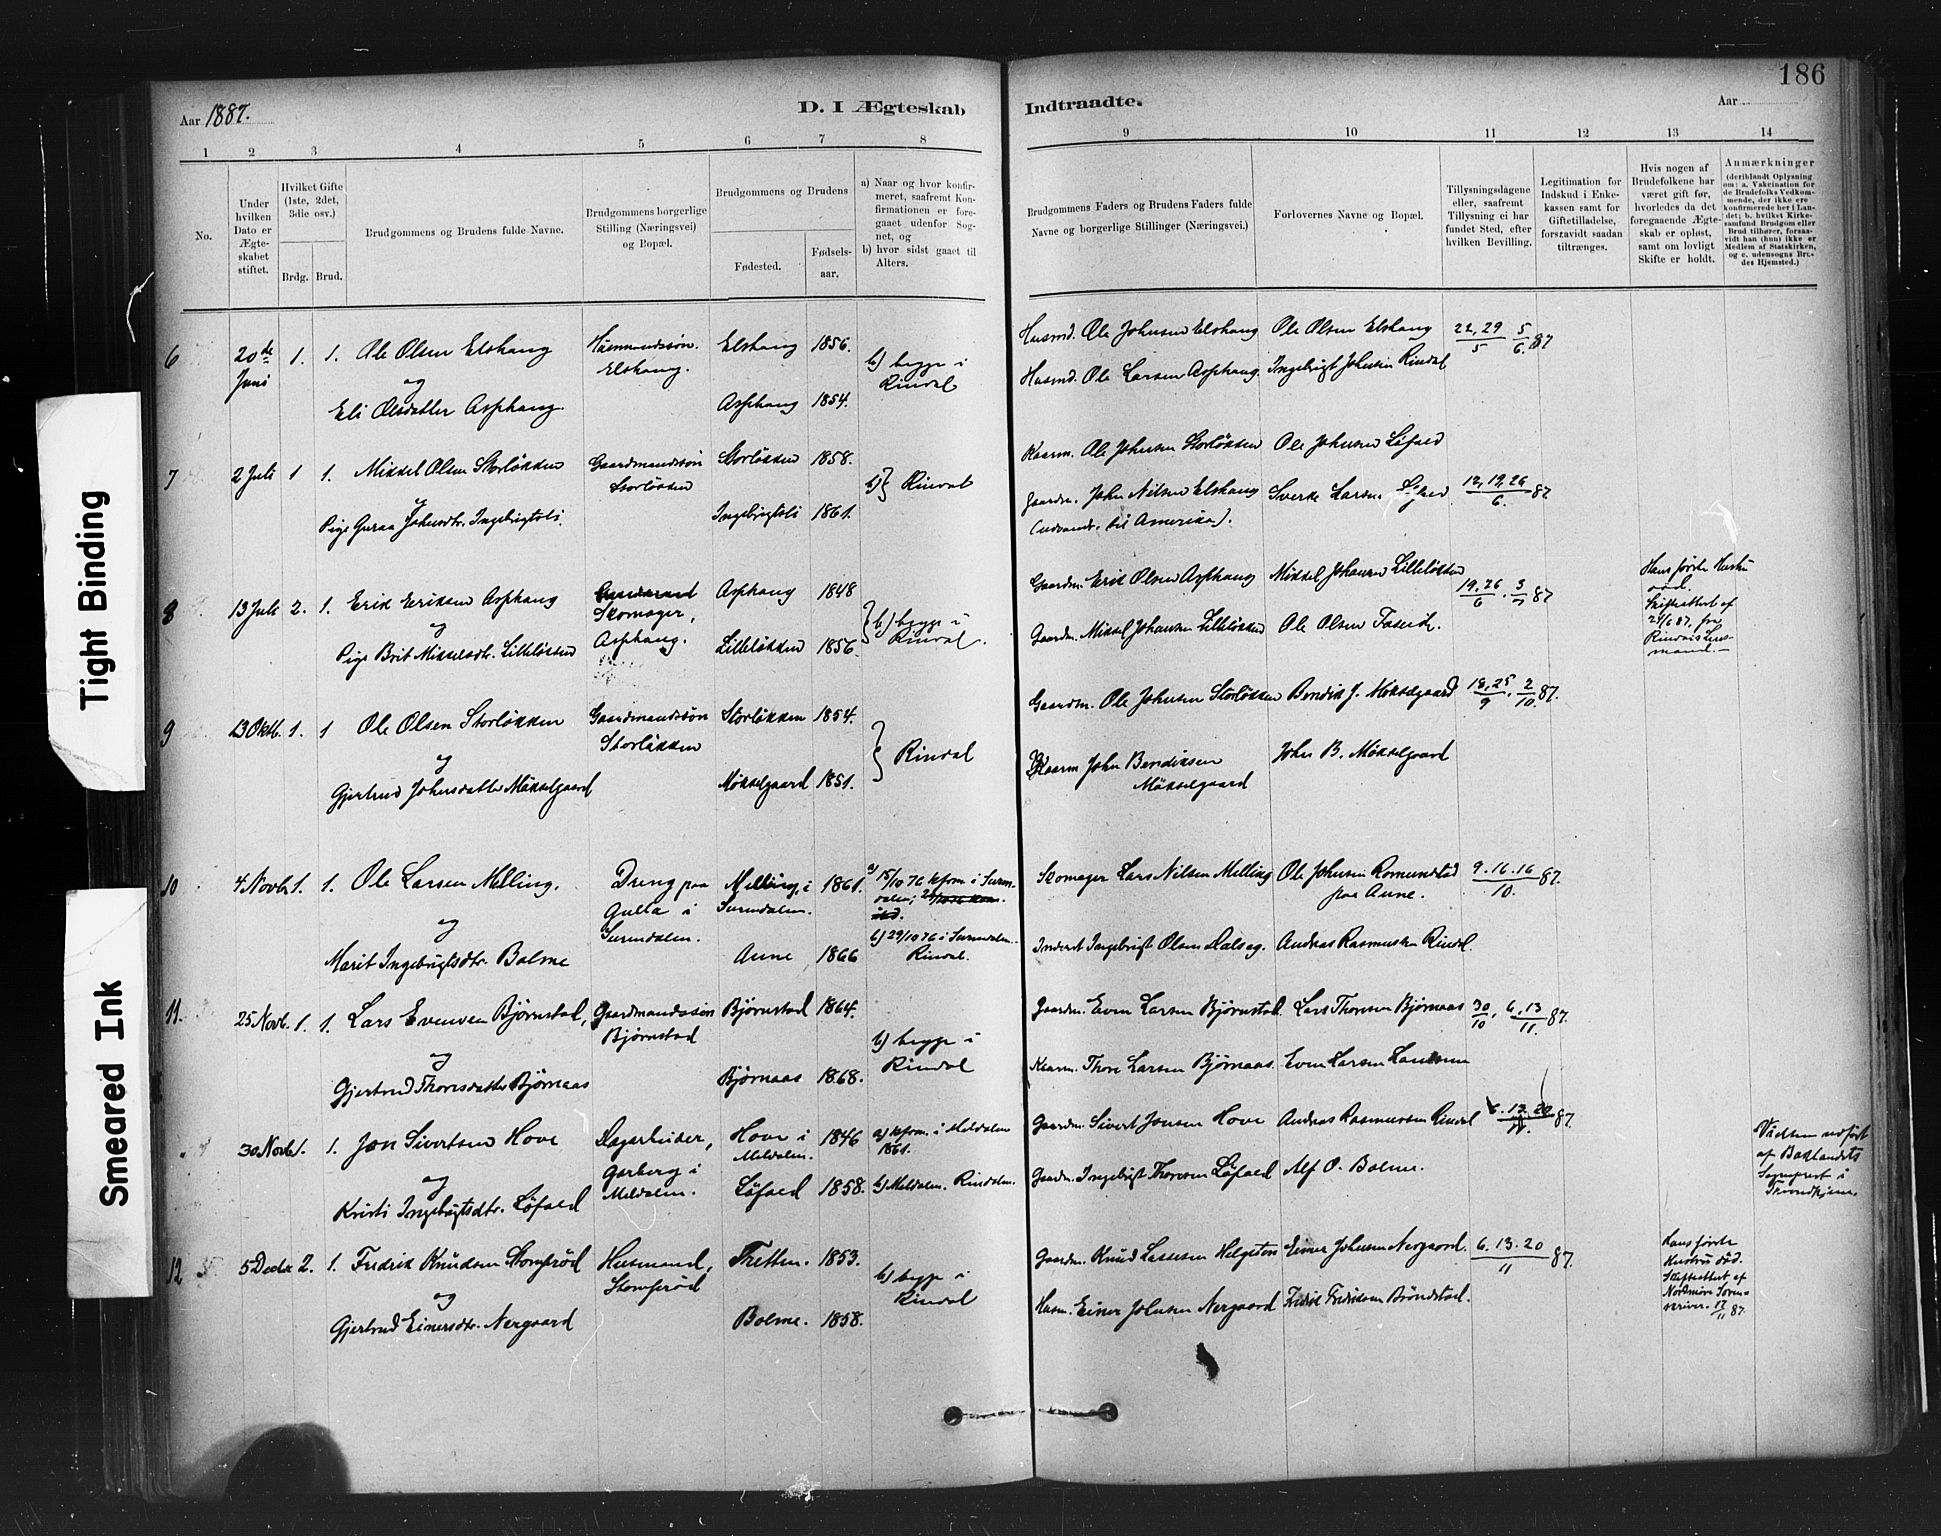 186
Aar 1887.
D. I Ægteskab Indtraadte.
Aar
1 2 3 4 5 6 7 8 9 10 11 12 13 14
No.
Under hvilken Dato er Ægteskabet stiftet.
Hvilket Gifte (1ste, 2det, 3die osv.)
Brdg. Brud.
Brudgommens og Brudens fulde Navne.
Brudgommens borgerlige Stilling (Næringsvei) og Bopæl.
Brudgommens og Brudens
Fødested. Fødselsaar.
a) Naar og hvor konfirmeret, saafremt Konfirmationen er foregaaet udenfor Sognet, og
b) hvor sidst gaaet til Alters.
Brudgommens Faders og Brudens Faders fulde Navne og borgerlige Stillinger (Næringsvei.)
Forlovernes Navne og Bopæl.
Tillysningsdagene eller, saafremt Tillysning ei har fundet Sted, efter hvilken Bevilling.
Legitimation for Indskud i Enkekassen samt for Giftetilladelse, forsaavidt saadan tiltrænges.
Hvis nogen af Brudefolkene har været gift før, hvorledes da det foregaaende Ægteskab er opløst, samt om lovligt Skifte er holdt.
Anmærkninger
(deriblandt Oplysning om: a. Vakcination for de Brudefolks Vedkommende, der ikke ere konfirmerede her i Landet; b. hvilket Kirkesamfund Brudgom eller Brud tilhører, forsaavidt han (hun) ikke er Medlem af Statskirken, og c. udensogns Brudes Hjemsted.)
6 20de Juni 1. 1. Ole Olsen Elshaug Husmandssøn. Elshaug. Elshaug 1856. b) begge i Rindal Husmd. Ole Johnsen Elshaug Ole Olsen Elshaug 22, 29/5 5/6 87
og
Eli Olsdatter Asphaug. Asphaug 1854. Husmd. Ole Larsen Asphaug. Ingebrigt Johnsen Rindal
7 2 Juli 1 1. Mikkel Olsen Storløkken Gaardmandssøn Storløkken Storløkken 1858. b) Rindal Kaarm. Ole Johnsen Storløkken Ole Johnsen Løfald
Pige Guraa Johnsdtr. Ingebrigtsli. Ingebrigtsli 1861. Gaardm. John Nilsen Elshaug Sverke Larsen 12, 19, 26/6. 87
(udvandr. til Amerika).
8 13 Juli 2. 1. Erik Eriksen Asphaug Skomager, Asphaug. Asphaug 1848 b) begge i Rindal. Gaardm. Erik Olsen Asphaug Mikkel Johansen Lilleløkken 19. 26/6 . 3/7 87 Hans første Hustru død. Skifteattest af 21/6 87, fra Rindals Lensmand.
og
Pige Brit Mikkelsdtr. Lilleløkken Lilleløkken 1856. Gaardm. Mikkel Johansen Lilleløkken Ole Olsen
9 13 Oktb. 1. 1 Ole Olsen Storløkken Gaardmandssøn Storløkken Storløkken 1854. Rindal Gaardm. Ole Johnsen Storløkken Bendik J. Møkkelgaard 18, 25/9 . 2/10 87.
og
Gjertrud Johnsdatter Møkkelgaard Møkkelgaard 1851. Kaarm John Bendiksen Møkkelgaard John B. Møkkelgaard
10 4 Novb. 1. 1. Ole Larsen Melling. Dreng paa Gulla i Surendalen. Melling i Surendalen. 1861. a) 15/10 76 kfrm. i Surendalen; b) 29/10 76 i Surendalen. Rindal. Skomager Lars Nilsen Melling Ole Johnsen Romundstad paa Aune. 9. 16. 16/10. 87.
og
Marit Ingebrigtsdtr. Bolme Aune 1866 Inderst Ingebrigt Olsen Dalseg. Andreas Rasmussen Rindal
11. 25 Novb. 1. 1. Lars Evensen Bjørnstad, Gaardmandssøn Bjørnstad Bjørnstad 1864. b) begge i Rindal Gaardm. Even Larsen Bjørnstad. Lars Thoresen Bjørnaas 30/10, 6. 13/11. 87.
og
Gjertrud Thoresdatter Bjørnaas Bjørnaas 1868. Kaarm. Thore Larsen Bjørnaas. Even Larsen
30 Novb. 1. 1. Jon Sivertsen Hove Dagarbeider, Garberg i Meldalen. Hove i Meldalen. 1846 a) kfrm. i Meldalen 1861. b) Meldalen. Rindalen. Gaardm. Sivert Jonsen Hove Andreas Rasmussen Rindal 6. 13. 20/11 87.
og
Kristi Ingebrigtsdtr. Løfald Løfald 1858. Gaardm. Ingebrigt Thoresen Løfald Alf O. Bolme.
Vielsen udført af Baklandets Sogneprest i Trondhjem.
12 5 Decbr 2. 1. Fredrik Knudsen Stomprød Husmand, Stomprød Tretten. 1853. b) begge i Rindal Gaardm. Knud Lassesen Helgeton Einer Johnsen Nergaard. 6. 13. 20/11 87. Hans første Hustru død. Skifteattest af Nordmøre Sorenskriver. 17/11 87.
og
Gjertrud Einersdtr. Nergaard Bolme. 1858. Husm. Einer Johnsen Nergaard Fredrik Fredriksen Brøndstad.
Tight Binding
Smeared Ink